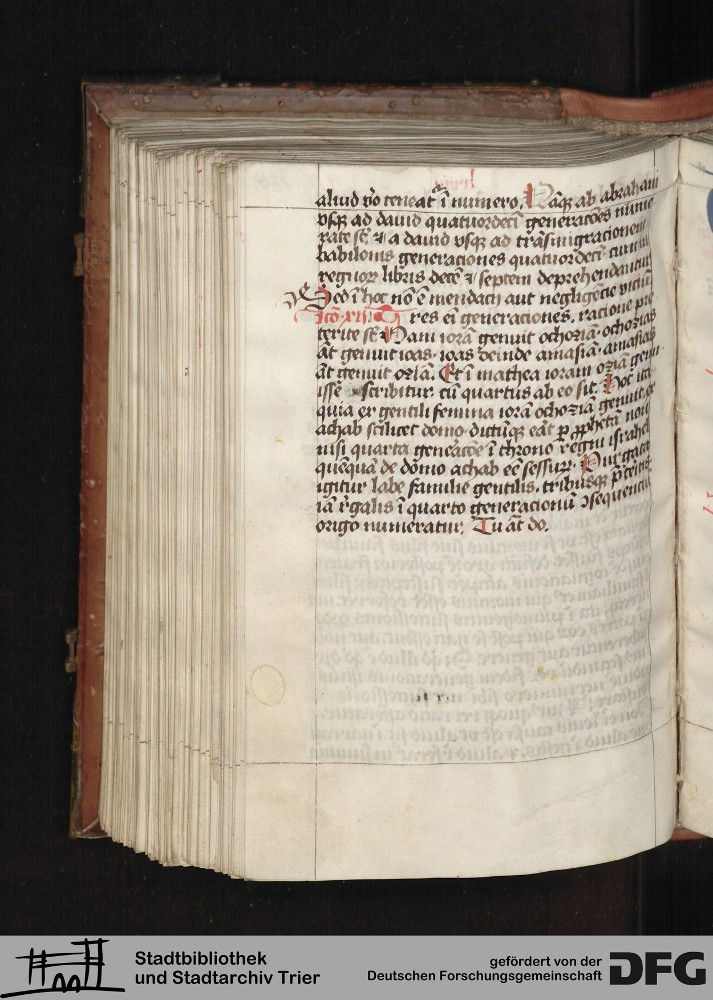 aliud v̊o teneat̃ ĩ numero. Nãqꝫ ab abraham
vsqꝫ ad dauid quatuordecĩ generacões nume
rate sũt ⁊ a dauid vsqꝫ ad trãsmigracionem
babilonis generaciones quatuordecĩ. cum in
regnoꝝ libris decẽ ⁊ septem deprehendantur
Sed ĩ hoc nõ ẽ mendacii aut negligẽcie viciũ
lcõ. xii. Tres eĩ generaciones. racione pre
terite sũt Nam iorã genuit ochoziã. ochozias
ãt genuit ioas. ioas deinde amasiã. amasias
ãt genuit oziã. Et ĩ mathea ioram oziã genu
isse scribitur. cũ quartus ab eo sit. Hoc ita
quia ex gentili femina iorã ochoziã genuit. ex
achab scilicet domo. dictũqꝫ eãt ꝑ ꝓphetã non
nisi quarta generacõe ĩ throno regni israhel
quẽquã de domo achab eẽ sessuꝝ. Purgata
igitur labe familie gentilis. tribusqꝫ p̃teritis
iã regalis ĩ quarto generacionũ ↄsequenciũ
origo numeratur. Tu ãt do.
Stadtbibliothek
und Stadtarchiv Trier
gefördert von der
Deutschen Forschungsgemeinschaft
DFG